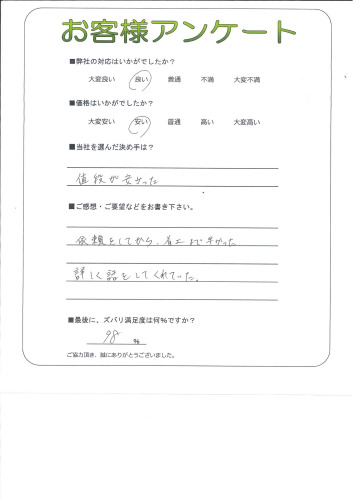 お客様アンケート
■弊社の対応はいかがでしたか?
大変良い 良い 普通 不満 大変不満
■価格はいかがでしたか?
大変安い 安い 普通 高い 大変高い
■当社を選んだ決め手は?
値段が安かった
■ご感想・ご要望などをお書き下さい。
依頼をしてから、着工まで早かった
詳しく話をしてくれていた。
■最後に、ズバリ満足度は何%ですか?
98 %
ご協力頂き、誠にありがとうございました。